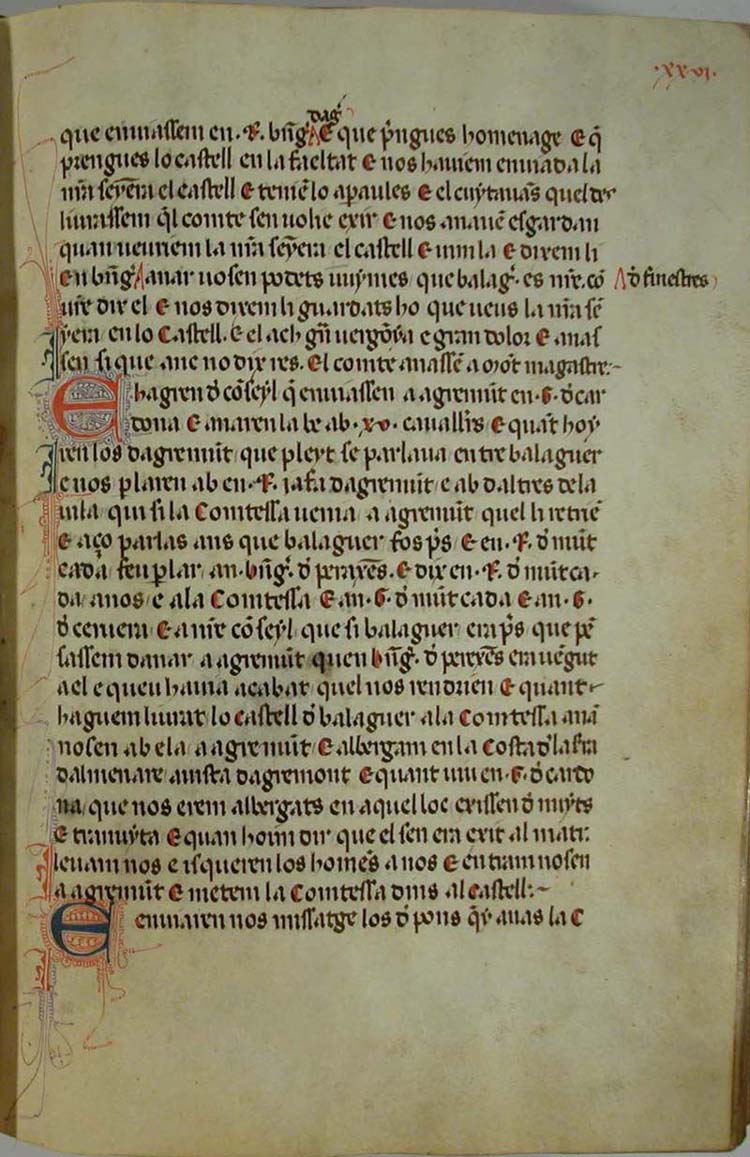 ·xxvi·
dag̃
que enuiassem en .R. bñg̃ E que p̃ngues homenage E q̃
prengues lo castell en la faeltat E nos hauiem enuiada la
nr̃a seyẽra el castell E teniẽ lo a paules E el cuytauãs quel des
liurassem q̃l comte sen uolie exir E nos anauẽ esgardan
quan ueuriem la nr̃a seỹera el castell E uim la E dixem li
en bñg̃ anar uos en podets uuymes que balag̃ es nr̃e. cõ
d̃ finestres
ur̃e dix el E nos dixem li guardats ho que ueus la nr̃a sẽ
yera en lo Castell. E el ach gñ uergoỹa e gran dolor E anas
sen si que anc no dix res. El comte anassẽ a mõt magastre:~
E hagren d̃ cõseyl q̃ enuiassen a agremũt en .G. d̃ car
dona E anaren la be ab .xv. cauallr̃s E quãt hoy
ren los dagremũt que pleyt se parlaua entre balaguer
e nos plaren ab en .R. iafa dagremũt e ab daltres de la
uila qui si la Comtessa uenia a agremũt quel li retriẽ
E aço parlas ans que balaguer fos p̃s E en .R. d̃ mũt
cada feu plar an .bñg̃. d̃ peraxẽs. E dix en .R. d̃ mũtca
da a nos e a la Comtessa E an .G. d̃ mũtcada E an .G.
d̃ ceruera E a nr̃e cõseyl que si balaguer era p̃s que pẽ
sassem danar a agremũt quen bñg̃. d̃ perexẽs era uẽgut
a el e queu hauia acabat quel nos rendrien E quant
haguem liurat lo castell d̃ balaguer a la Comtessa anã
nosen ab ela a agremũt E albergam en la Costa d̃ la s̃ra
dalmenare a uista dagremont E quant uiu en .G. d̃ cardo
na que nos erem albergats en aquel loc exissen d̃ nuyts
E tranuyta E quan hoim dir que el sen era exit al matí
leuam nos e isqueren los homẽs a nos E entram nosen
a agremũt E metem la Comtessa dins al castell:~
E enuiaren nos missatge los d̃ pons q̃ y anas la C